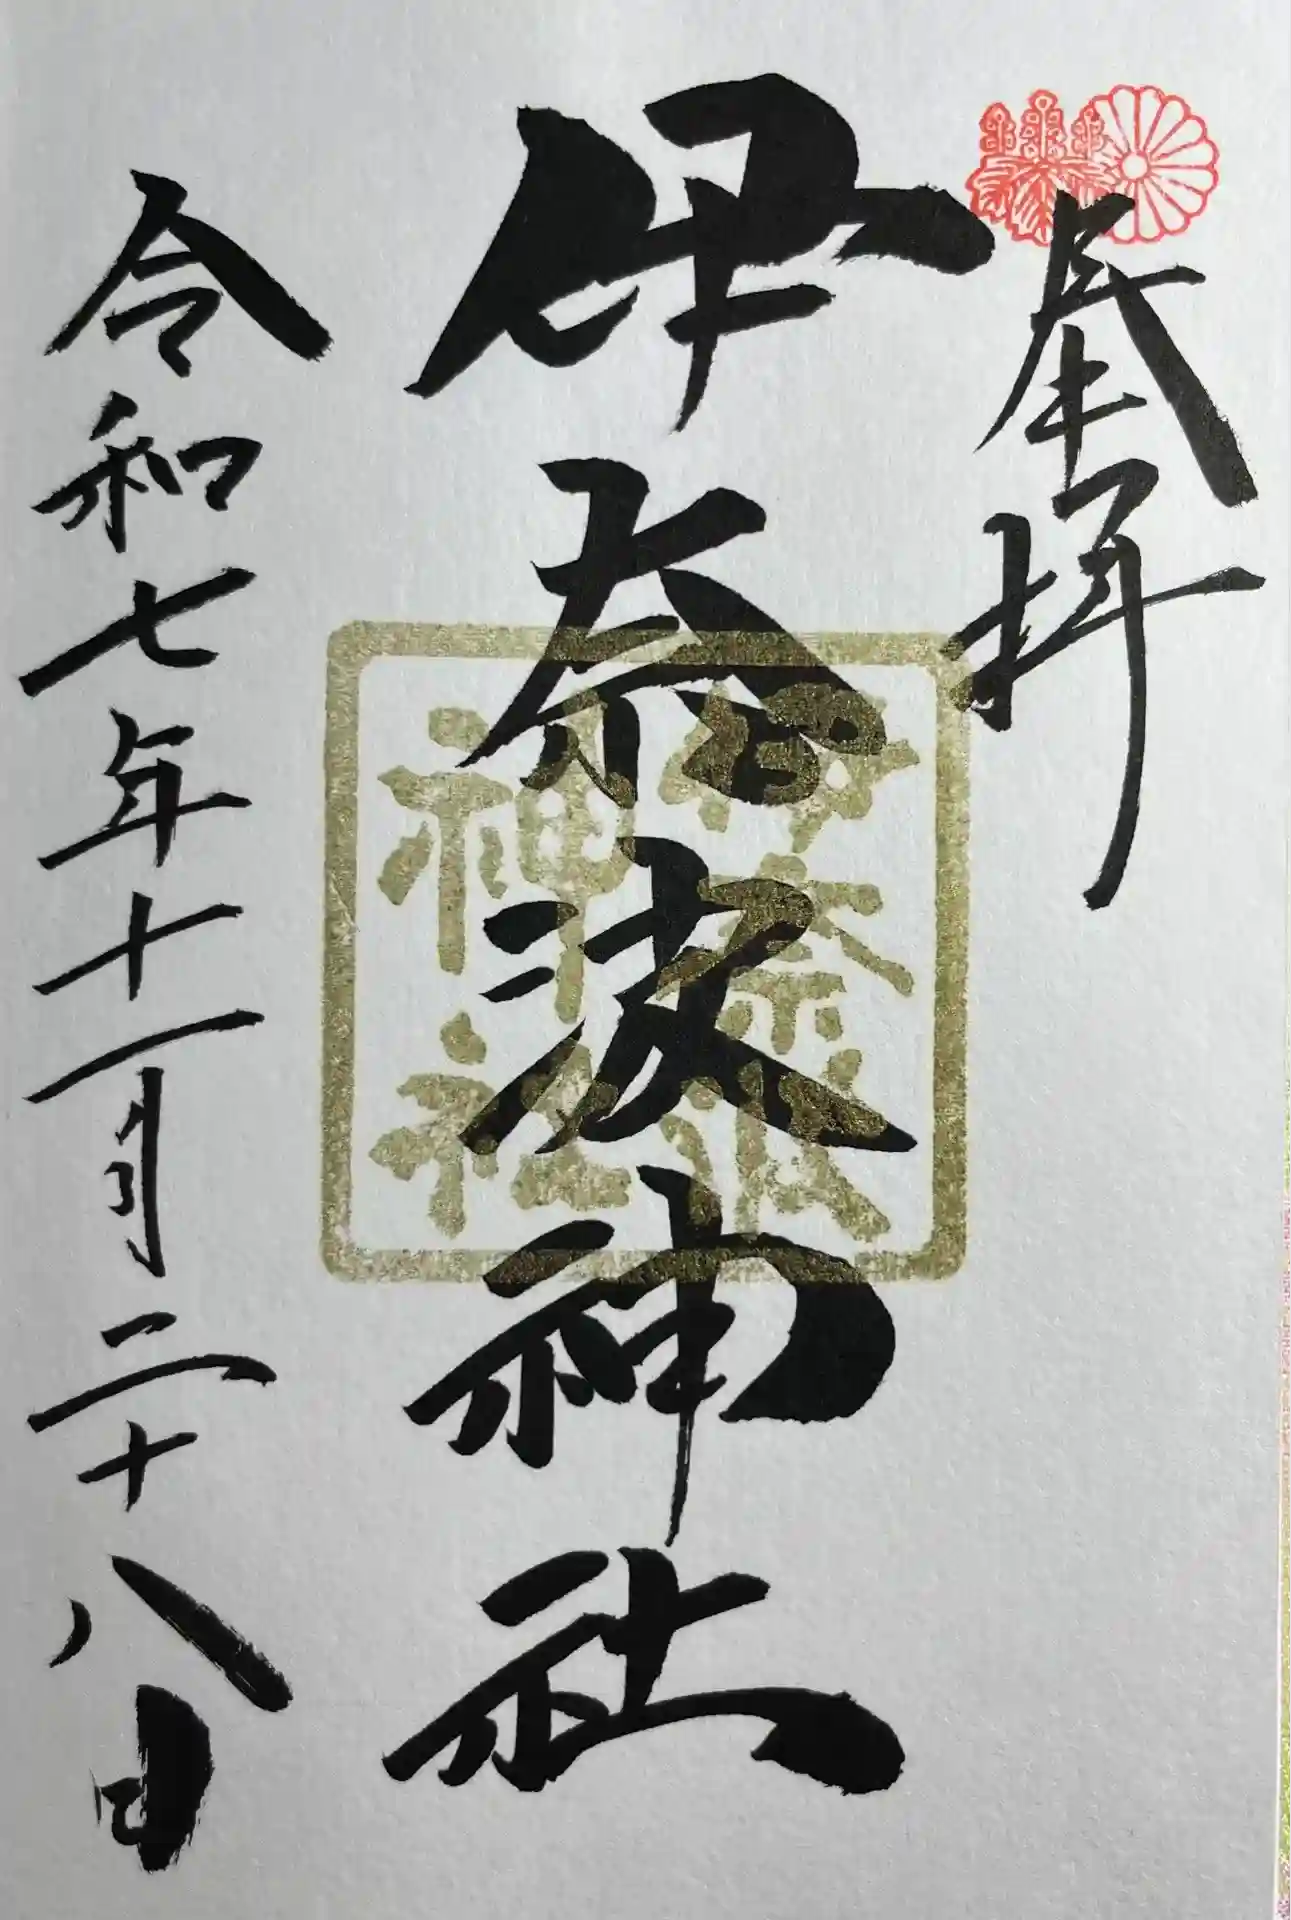 奉拝
伊奈波神社
令和七年十一月二十八日
伊奈波
神社